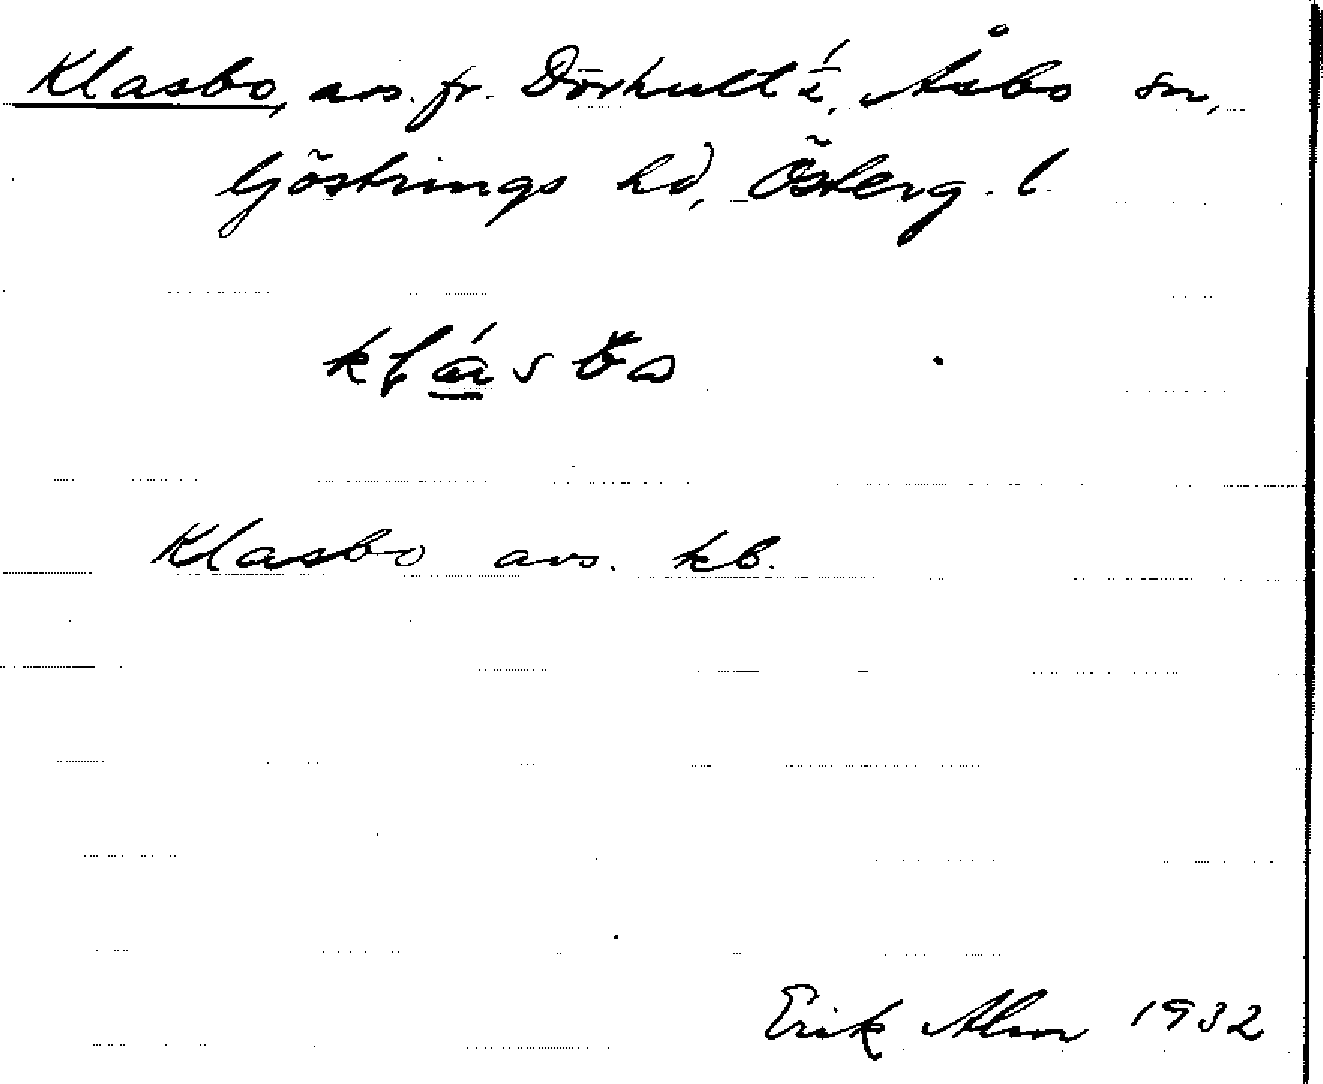 Klasbo, avs. fr. Dörhult 1/2, Åsbo sn,
Göstrings hd, Österg. l.
Klasbo avs. kb.
Erik Alm 1932